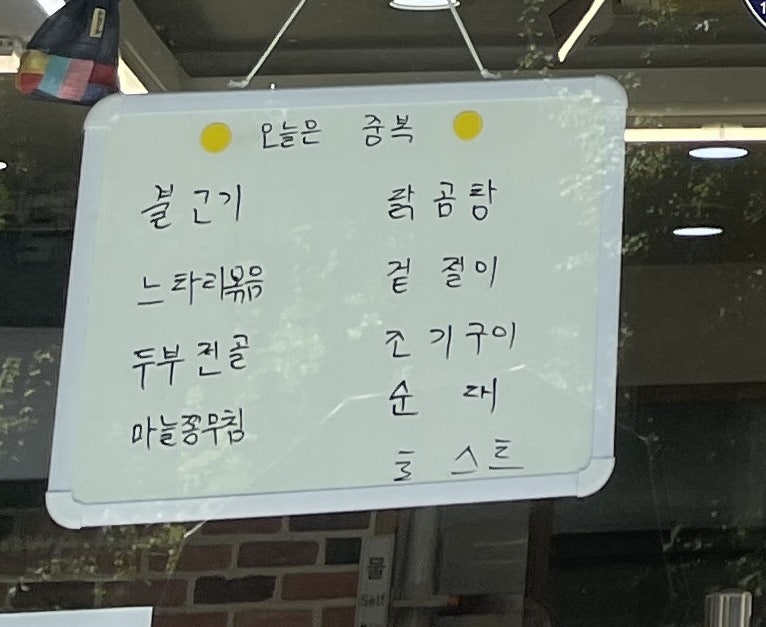 오늘은 중복
불고기 닭곰탕
느타리볶음 겉절이
두부전골 조기구이
마늘쫑무침 순대
토스트
물
Self